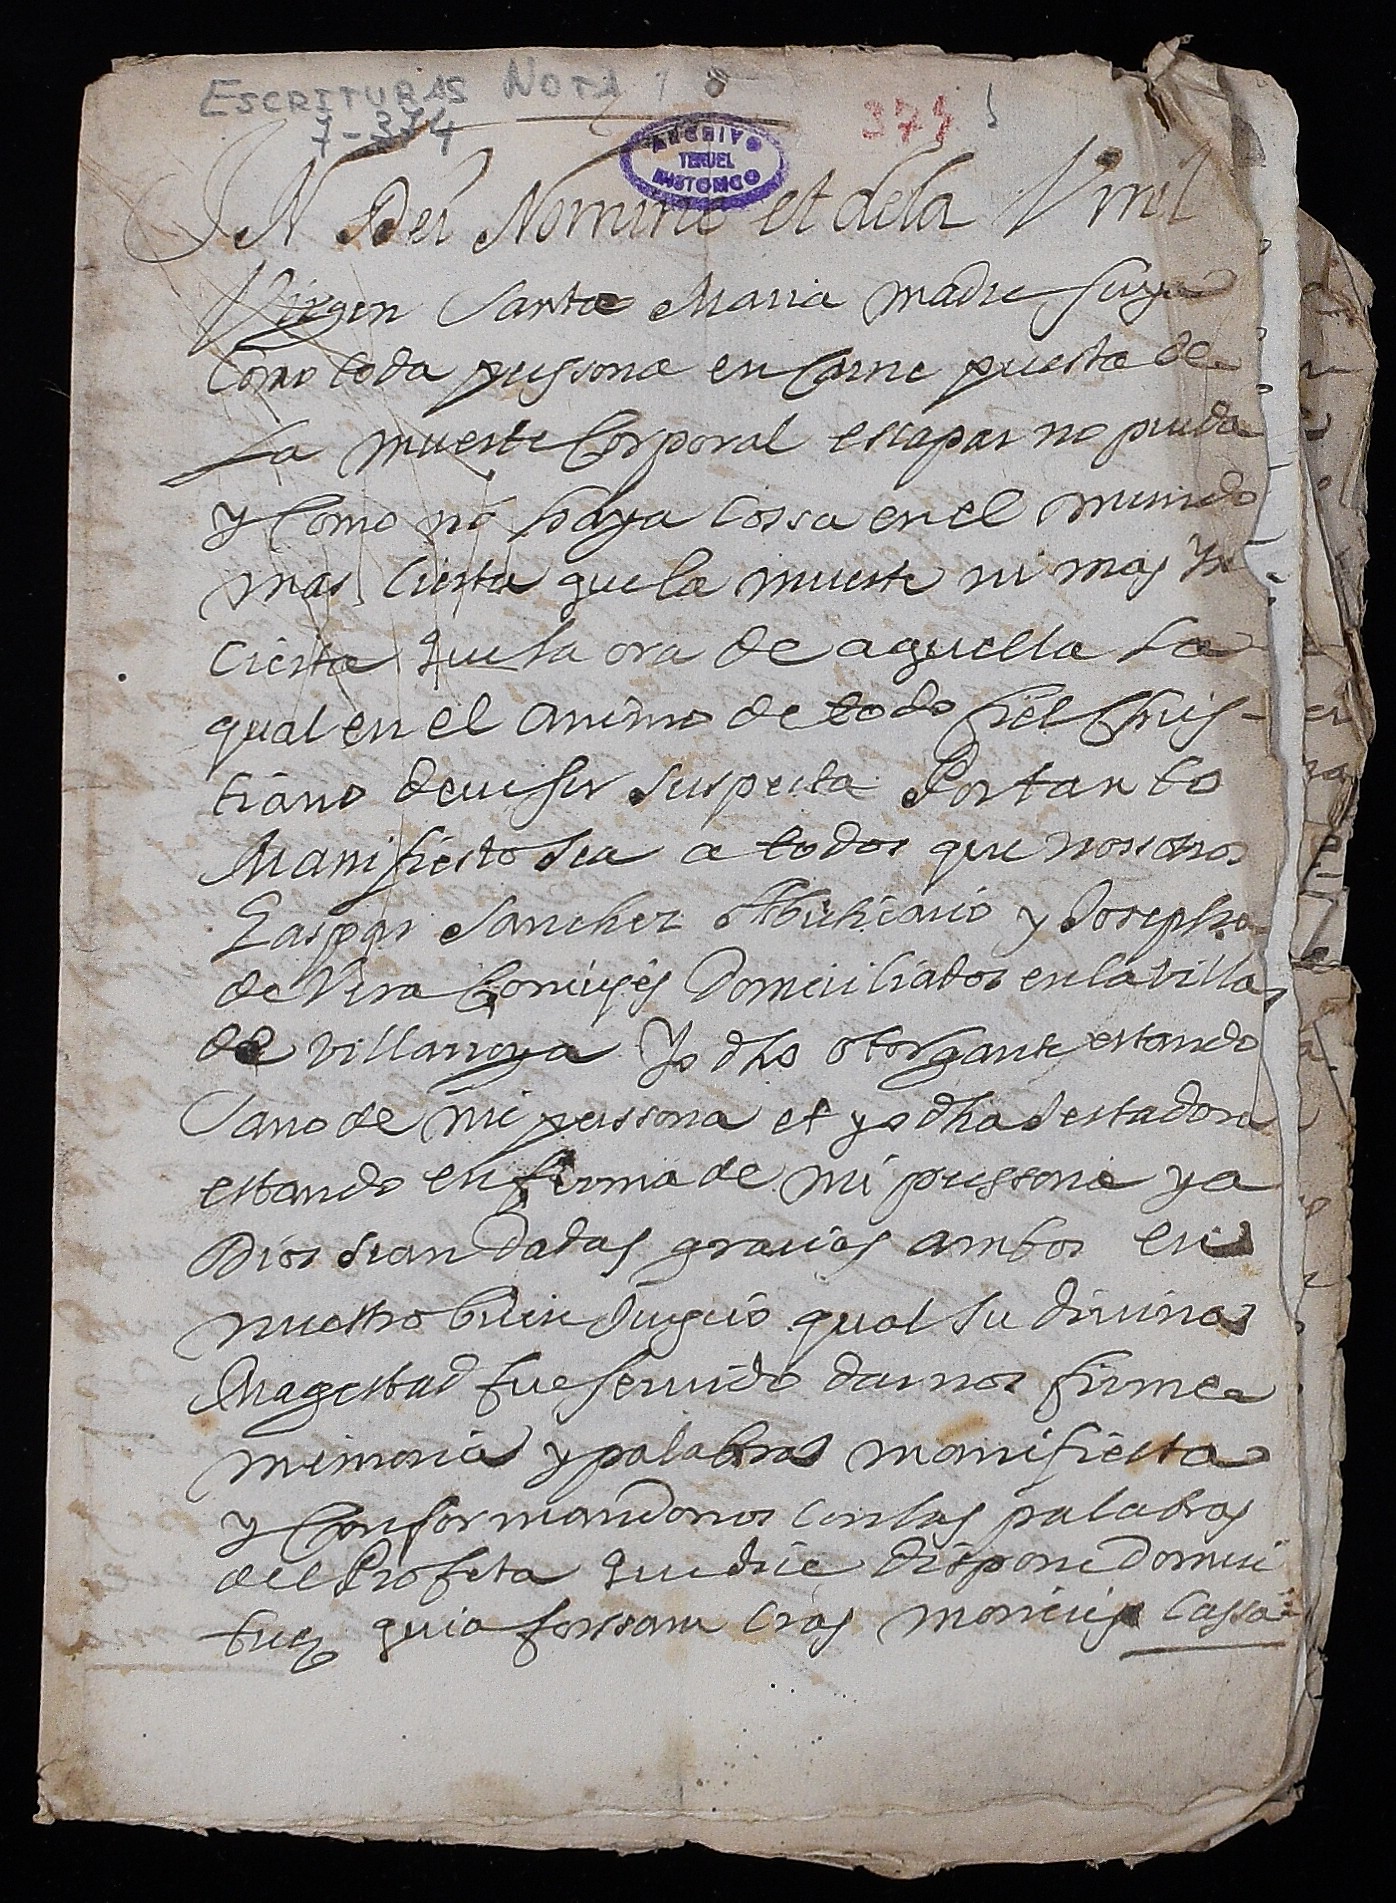 ESCRITURAS NOTA
7-374
374
ARCHIVO
TERUEL
HISTORICO
IN Dei Nomine et dela Vmil
Virgen Santa Maria madre suya
Como toda perssona en Carne puesta de
La muerte Corporal escapar no pueda
y Como no haya Cossa en el mundo
mas cierta que la muerte ni mas yn
cierta que la ora de aquella La
qual en el animo de todo fiel Chris-
tiano deue ser suspecta Portanto
Manifiesto sea a todos que nosotros
Gaspar Sanchez Abuticario y Josepha
de Vera Coniuges Domiciliados en la Villa
de Villarroya Yo dho otorgante estando
Sano de mi perssona et yo dha testadora
estando enferma de mi perssona y a
Dios sean dadas gracias ambos en
nuestro buen Jugcio qual su diuina
Magestad fue seruido darnos firme
memoria y palabra manifiesta
y Conformandonos con las palabras
del Profeta que dice dispone Domui
tue quia forssam cras morieris Cassa